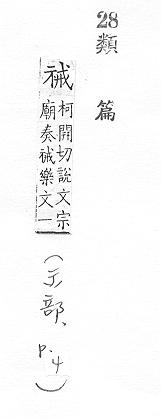 28類篇
祴柯開切說文宗
廟奏祴樂文一
(示部、p.4)